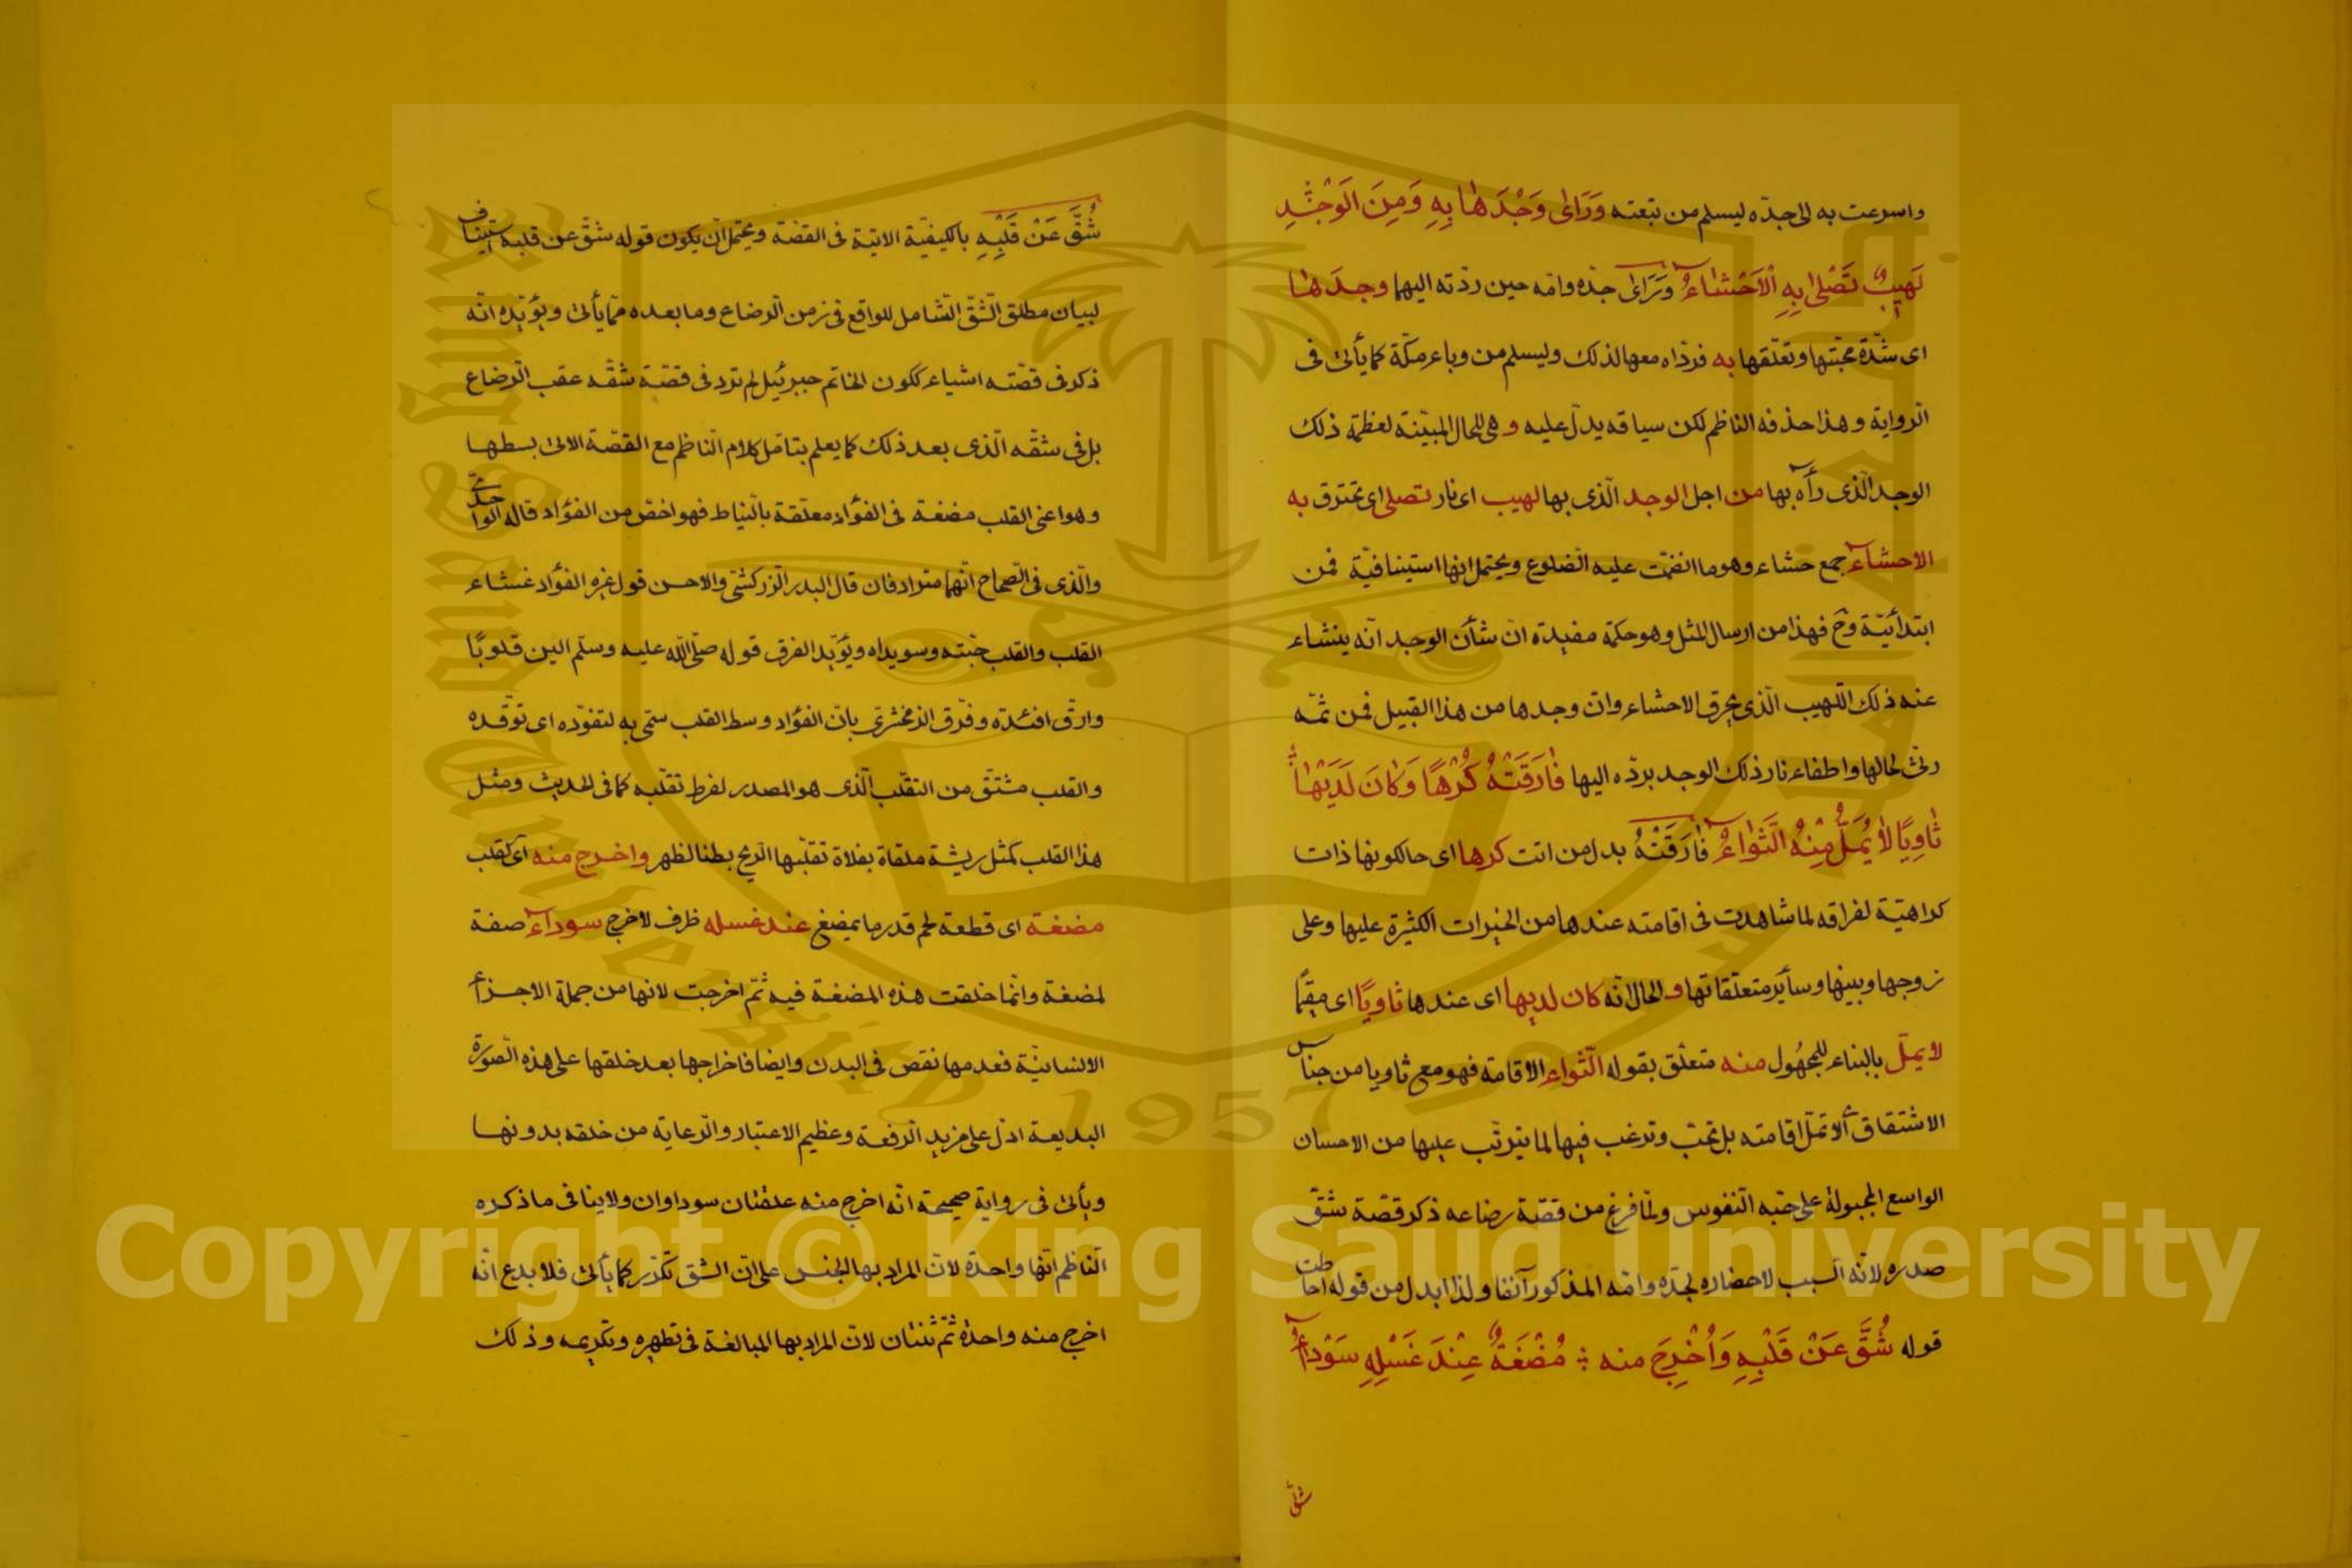 واسرعت به الى جدّه ليسلم من تبعته وَرَاٰى وَجْدَهٰا بِهِ وَمِنَ الوَجْدِ
لَهِيبٌ تَصْلٰى بِهِ الْاَحْشٰاءُ وَرَاٰى جدّه وامّه حين ردّته اليهما وجدَهٰا
اى شدّة محبّتها وتعلّقها به فردّاه معها لذلك وليسلم من وباء مكّة كما يأتى فى
الرواية وهذا حذفه الناظم لكن سياقه يدلّ عليه و هى للحال المبيّنة لعظمة ذلك
الوجد الّذى رأه بها من اجل الوجد الّذى بها لهيب اى نار تصلى اى تحترق به
الاحشاء جمع حشاء وهو ما انضمّت عليه الضلوع ويحتمل انها استينافيّة فمن
ابتدائيّة وح فهذا من ارسال المثل وهو حكمة مفيدة انّ شأن الوجد انّه ينشاء
عنه ذلك اللّهيب الّذى يحرق الاحشاء وانّ وجدها من هذا القبيل فمن ثمّه
رثى لحالها واطفاء نار ذلك الوجد بردّه اليها فٰارَقَتْهُ كُرْهًا وَكٰانَ لَدَيْهٰا
ثٰاوِيًا لٰا يُمَلُّ مِنْهُ الثَّوٰاءُ فٰارَقَتْهُ بدل من اتت كرها اى حالكونها ذات
كراهيّة لفراقه لما شاهدت فى اقامته عندها من الخيرات الكثيرة عليها وعلى
زوجها وبينها وسائر متعلّقاتها و الحال انّه كان لديها اى عندها ثاويًا اى مقيمًا
لا يملّ بالبناء للمجهُول منه متعلّق بقوله الثّواء الاقامة فهو مع ثاويا من جناس
الاشتقاق ألا تملّ اقامته بل تحبّ وترغب فيها لما يترتّب عليها من الاحسان
الواسع المجبولة على حبّه النّفوس ولمّا فرغ من قصّة رضاعه ذكر قصّة شقّ
صدره لانّه السبب لاحضاره لجدّه وامّه المذكور آنفا ولذا ابدل من قوله احاطت
قوله شُقَّ عَنْ قَلْبِهِ وَاُخْرِجَ منه ؞ مُضْغَةٌ عِنْدَ غَسْلِهِ سَوْدٰاءُ
شقّ
شُقَّ عَنْ قَلْبِهِ بالكيفيّة الاتية فى القصّة ويحتمل ان يكون قوله شقّ عن قلبه استيناف
لبيان مطلق الشّقّ الشّامل للواقع فى زمن الرضاع وما بعده ممّا يأتى ويؤيّده انّه
ذكر فى قصّته اشياء ككون الخاتم جبرئيل لم ترد فى قصّة شقّه عقب الرضاع
بل فى شقّه الّذى بعد ذلك كما يعلم بتامّل كلام النّاظم مع القصّة الاتى بسطها
وهو اعنى القلب مضغة فى الفؤاد معلّقة بالنّياط فهو اخصّ من الفؤاد قاله الواحدىّ
والّذى فى الصّحاح انّهما مترادفان قال البدر الزركشىّ والاحسن قول غيره الفؤاد غشاء
القلب والقلب حبّته وسويداه ويؤيّد الفرق قوله صلّى اللّه عليه وسلّم الين قلوبًا
وارقّ افئدة وفرّق الزمخشرىّ بانّ الفؤاد وسط القلب سمّى به لتفوّده اى توقّده
والقلب مشتّق من التقلّب الّذى هو المصدر لفرط تقلّبه كما فى الحديث ومثل
هذا القلب كمثل ريشة ملقاة بفلاة تقلّبها الرّيح بطنا لظهر واخرج منه اى القلب
مضغة اى قطعة لحم قدر ما يمضغ عند غسله ظرف لاخرج سوداء صفة
لمضغة وانّما خلقت هذه المضغة فيه ثمّ اخرجت لانها من جملة الاجزأ
الانسانيّة فعدمها نقص فى البدن وايضا فاخراجها بعد خلقها على هذه الصّورة
البديعة ادلّ على مزيد الرّفعة وعظيم الاعتبار والرّعاية من خلقه بدونها
ويأتى فى رواية صحيحة انّه اخرج منه علقتان سوداوان ولا ينافى ما ذكره
النّاظم انّها واحدة لانّ المراد بها الجنس على انّ الشق تكرّر كما يأتى فلا بدع انّه
اخرج منه واحدة ثمّ ثنتان لانّ المراد بها المبالغة فى تطهيره وتكريمه وذلك